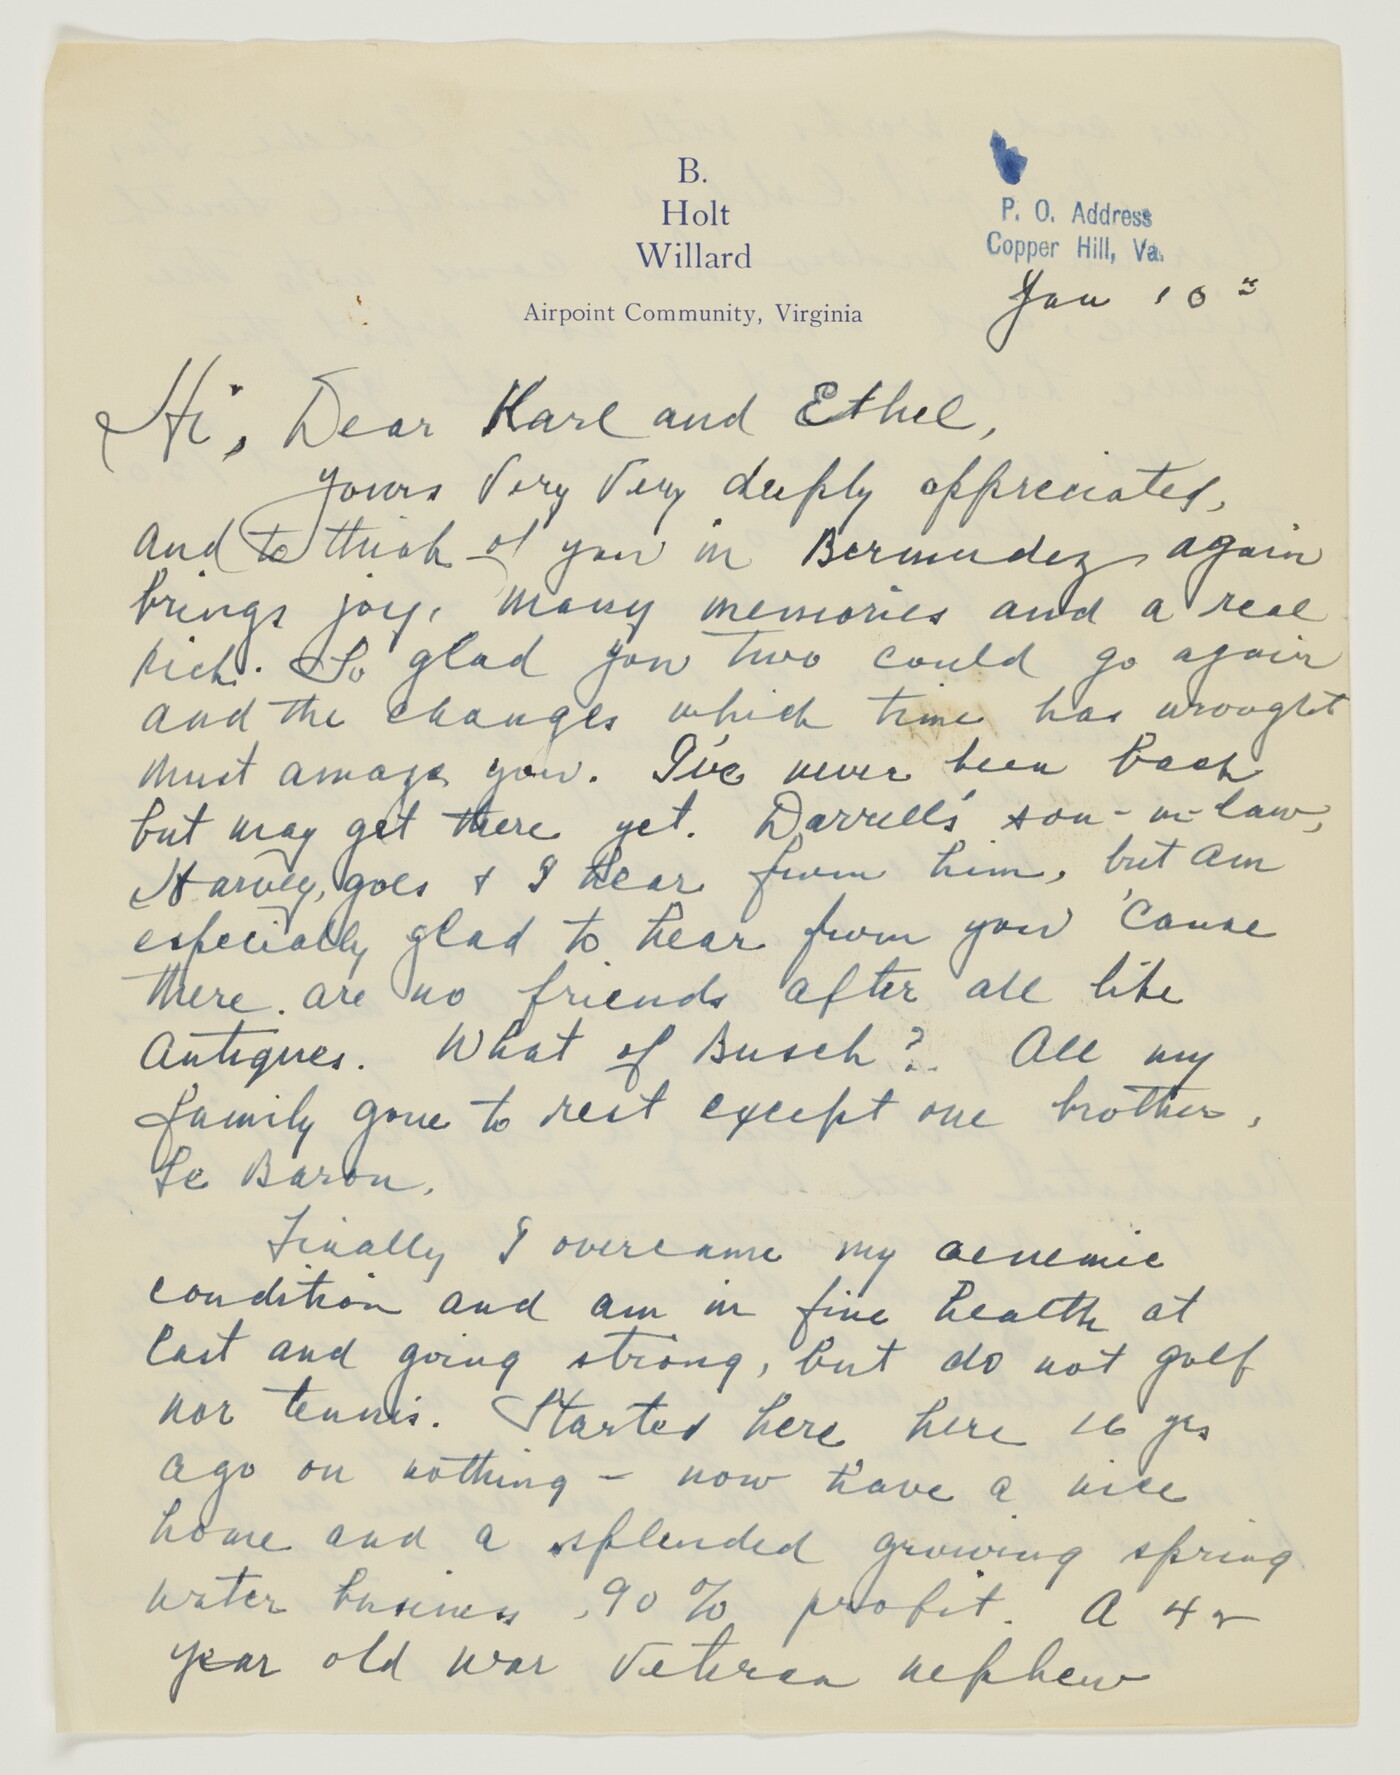 B.
Holt
Willard
Airpoint Community, Virginia
P. O. Address
Copper Hill, Va.
Jan 10
Hi, Dear Karl and Ethel,
Yours Very Very deeply appreciated,
and to think of you in Bermudez again
brings joy, many memories and a real
kick. So glad you two could go again
and the changes which time has wrought
must amaze you. I've never been back
but may get there yet. Darrell's son-in-law,
Harvey, goes & I hear from him, but am
especially glad to hear from you 'cause
there are no friends after all like
Antiques. What of Busch? All my
family gone to rest except one brother,
Le Baron.
Finally I overcame my aenemic
condition and am in fine health at
last and going strong, but do not golf
nor tennis. Started here here 16 yrs
ago on nothing - now have a nice
home and a splended growing spring
water business, 90% profit. A 42
year old war Veteran nephew